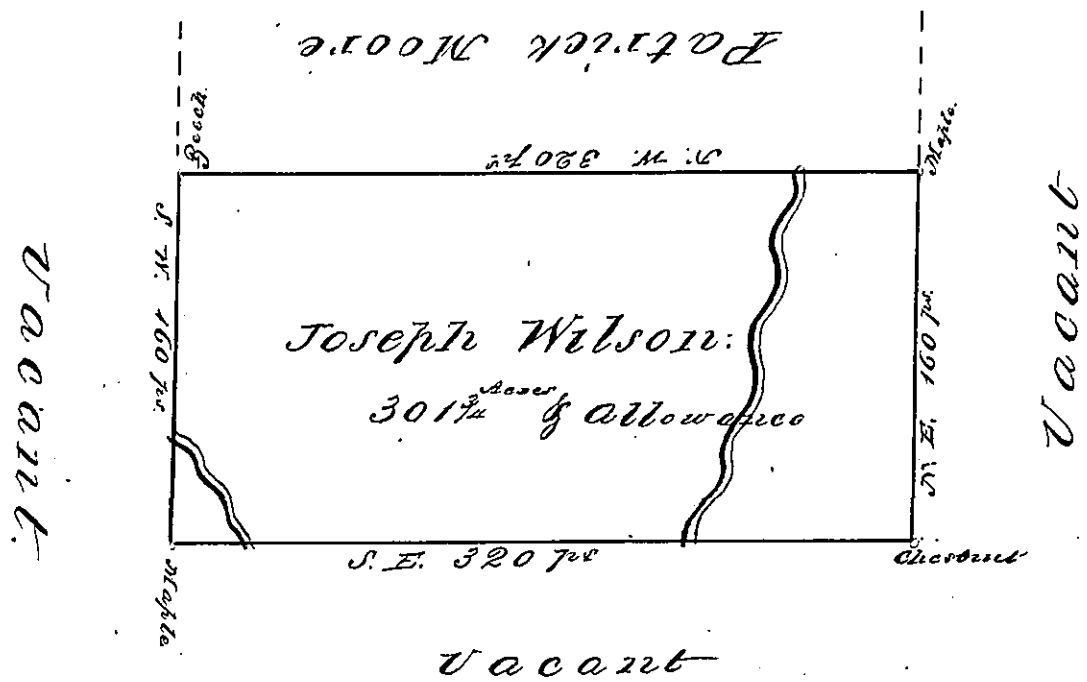 Patrick Moore
Beech.
Maple.
N. W. 320 prs
S. W. 160 prs.
Vacant.
Joseph Wilson:
301 3/4 Acres & allowance
N. E. 160 prs.
Vacant
S. E. 320 prs
Chestnut
Maple
Vacant